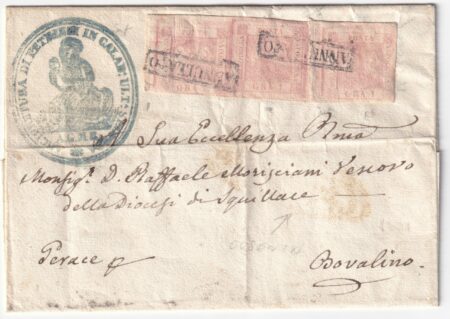 IN CALAB. ULT.
ANNULLATO
ANNULLATO
GRA 1
GRA 1
GRA 1
A Sua Eccellenza Rma
Monsigr. D. Raffaele Morisciani Vescovo
della Diocesi di Squillace
Gerace
Bovalino